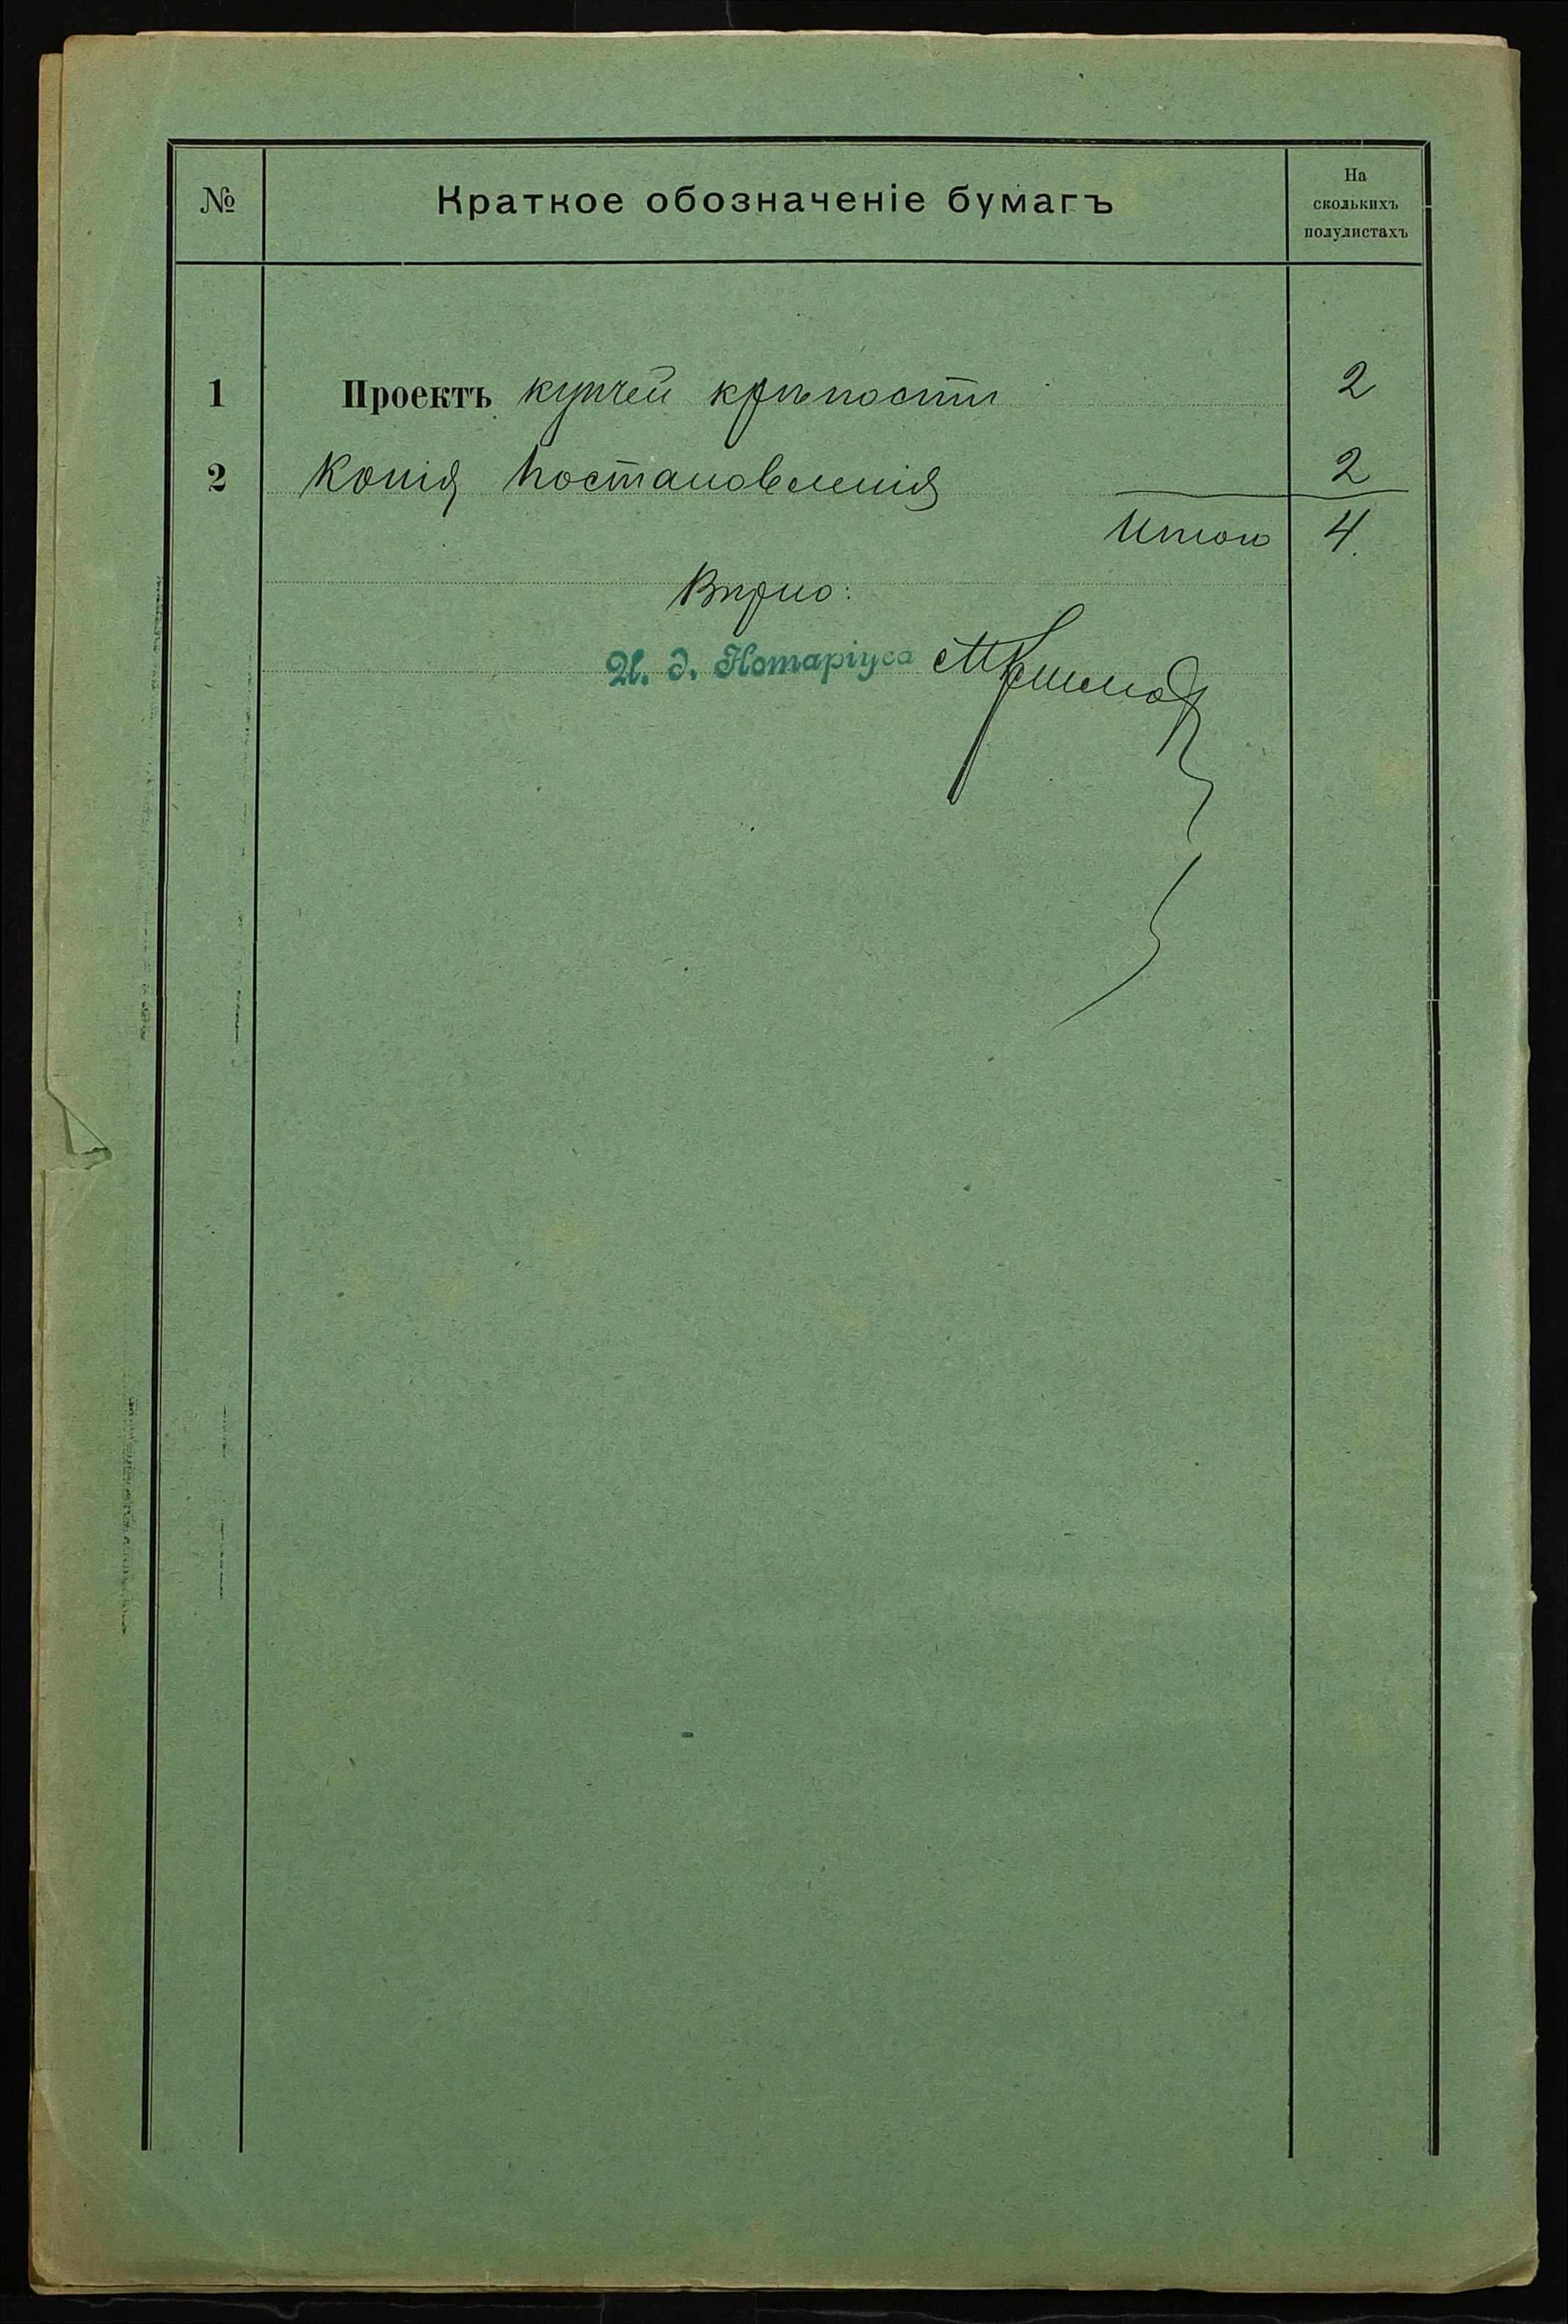 №
Краткое обозначеніе бумагъ
На
сколькихъ
полулистахъ
1 Проектъ купчей крѣпости 2
2 Копія постановленія 2
Итого 4.
Вѣрно:
И. д. Нотаріуса